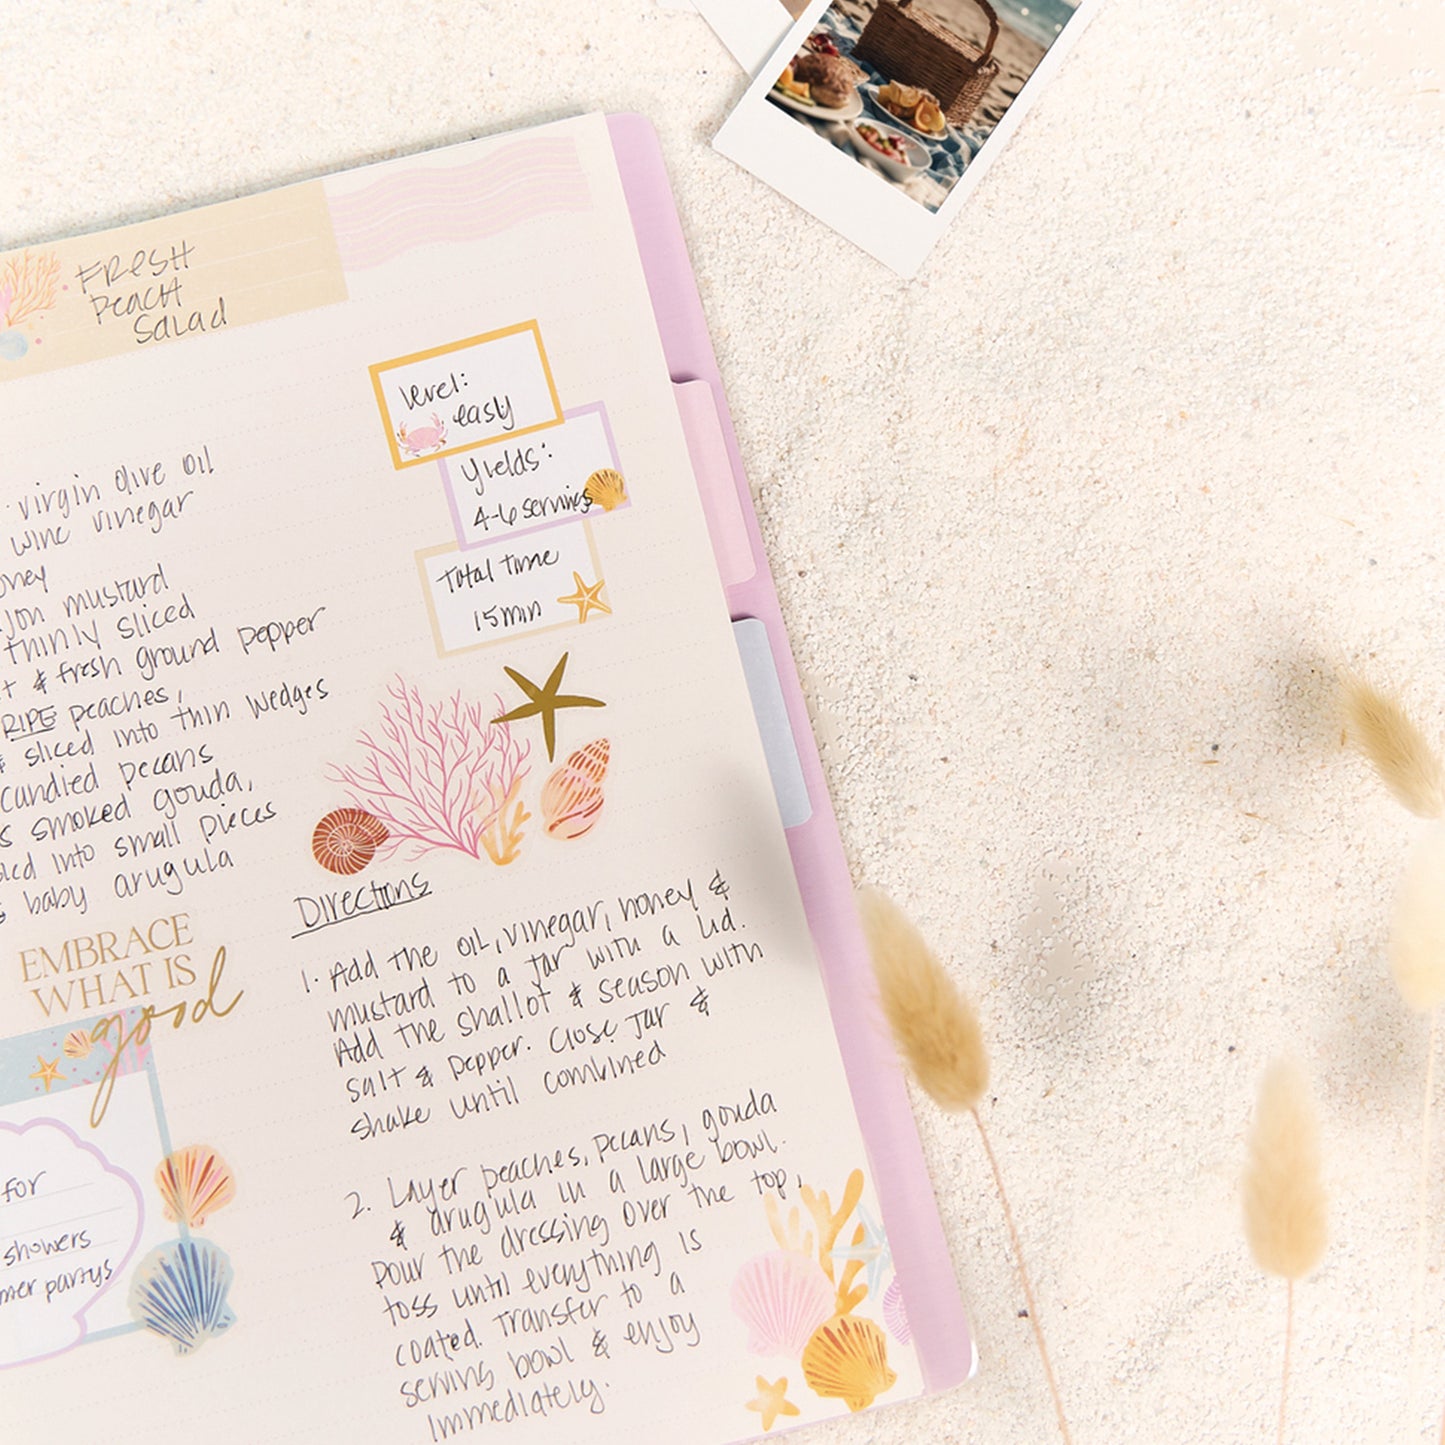 FRESH
Peach
Salad
level:
easy
Yields:
4-6 servings
Total Time
15 min
virgin olive oil
wine vinegar
mustard
thinly sliced
& fresh ground pepper
RIPE peaches,
& sliced into thin wedges
candied pecans
smoked gouda,
into small pieces
baby arugula
EMBRACE
WHAT IS
good
for
showers
partys
Directions
1. Add the oil, vinegar, honey &
mustard to a jar with a lid.
Add the shallot & season with
salt & pepper. Close jar &
shake until combined
2. Layer peaches, pecans, gouda
& arugula in a large bowl.
Pour the dressing over the top,
toss until everything is
coated. Transfer to a
serving bowl & enjoy
immediately.